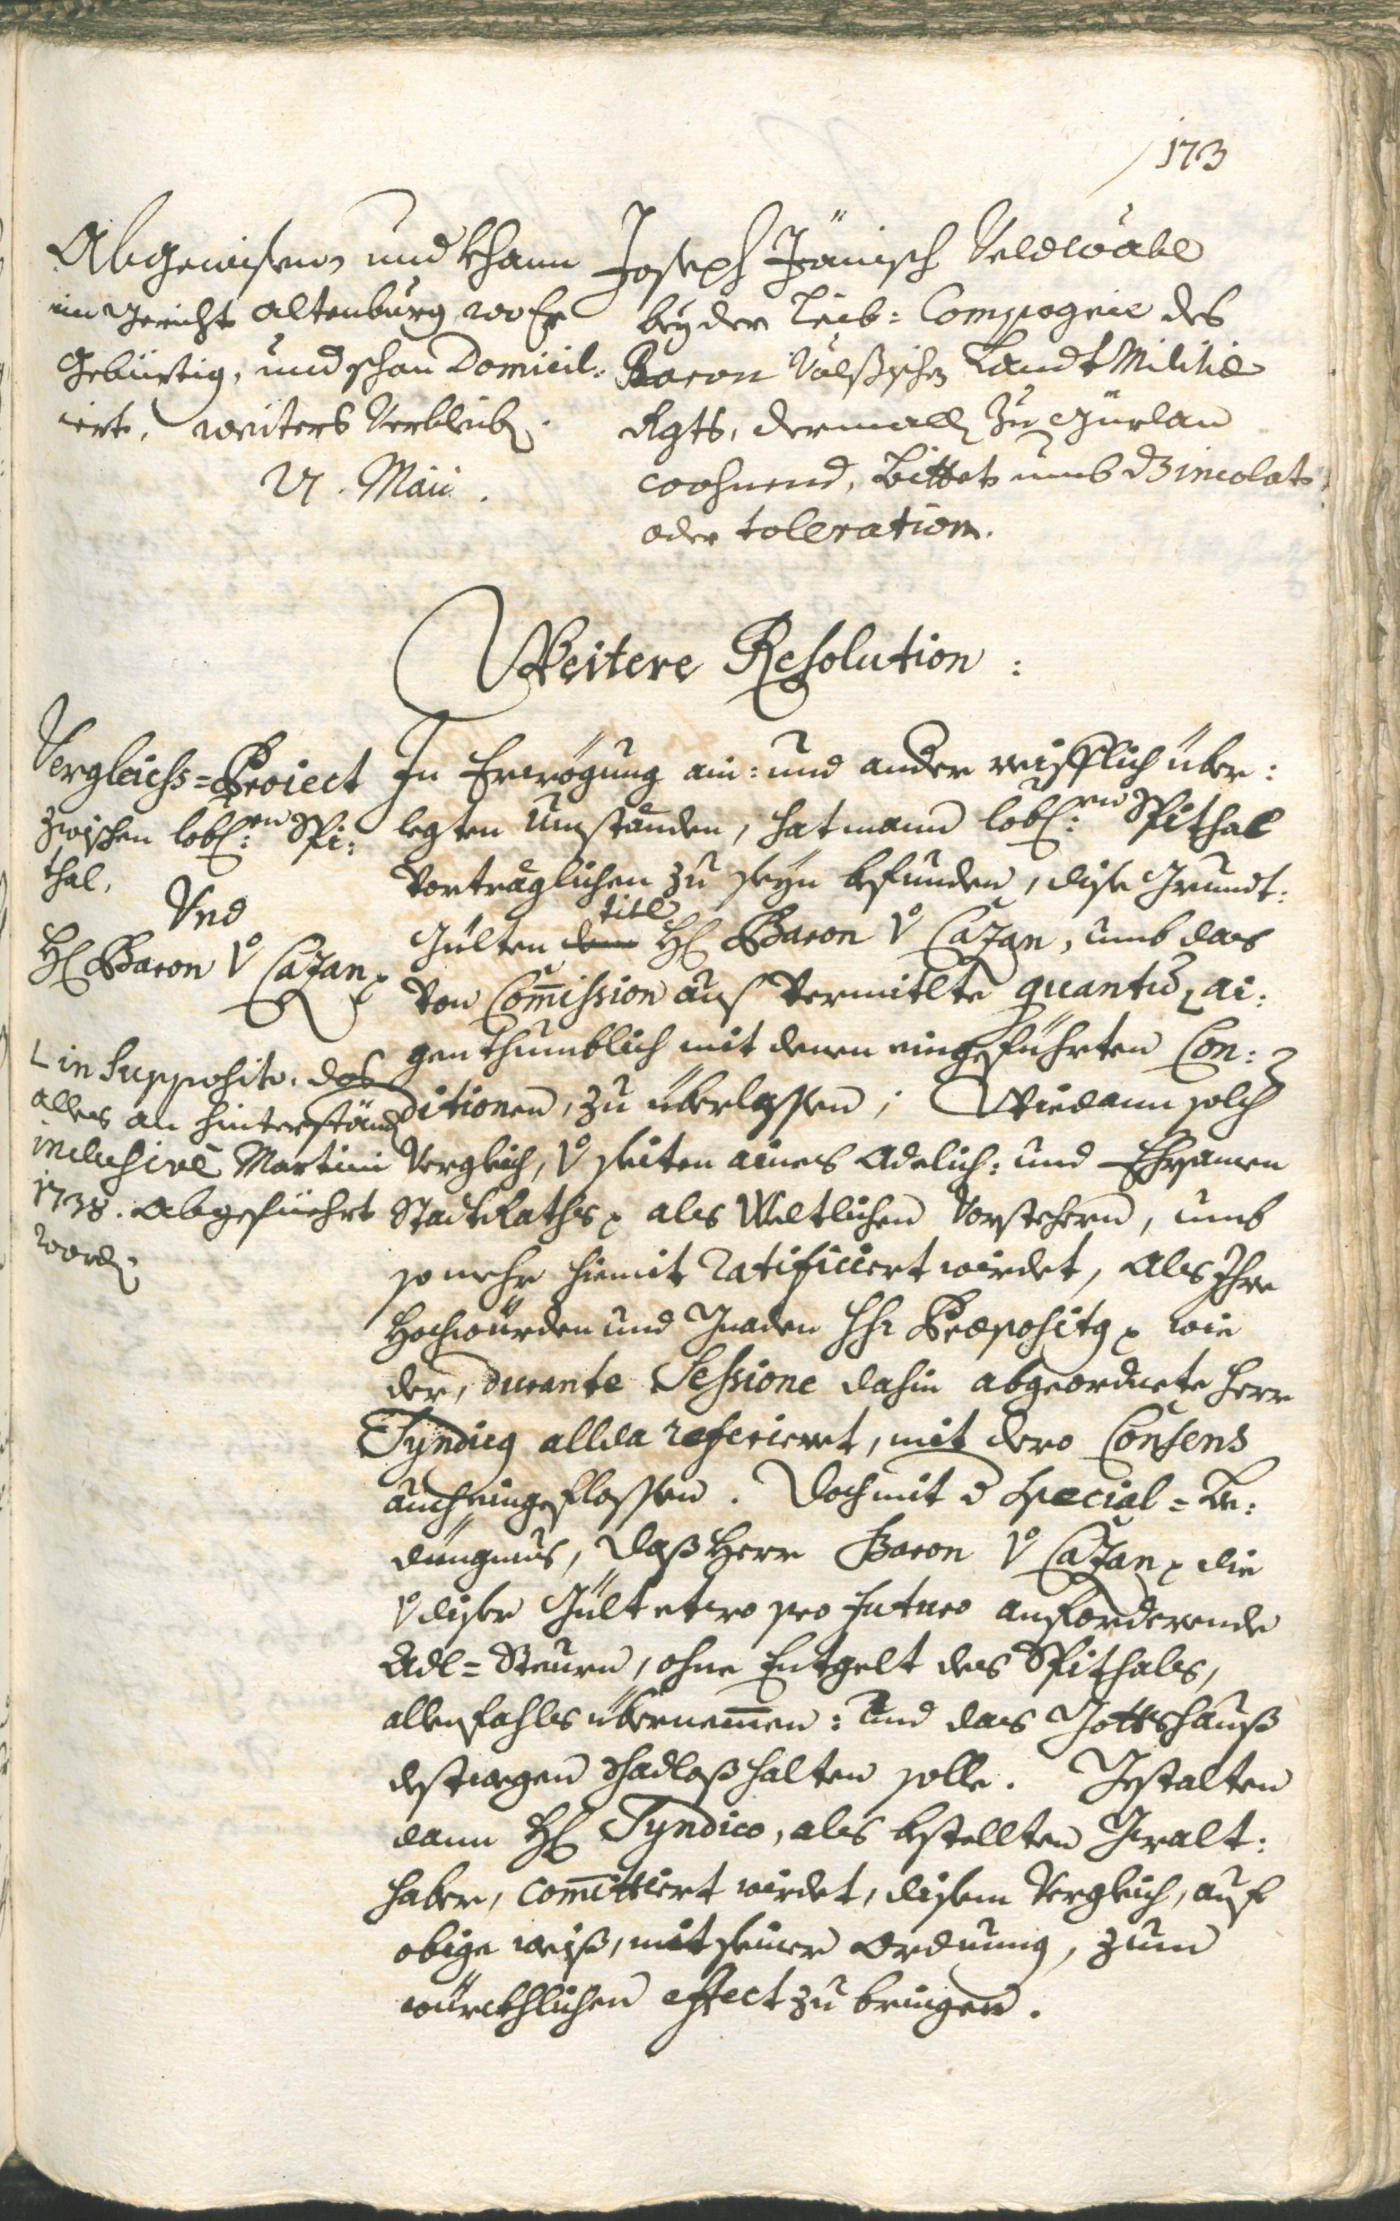 173
Abgewisen, und khann
im Gericht Altenburg wo Er
Gebürtig, und schon Domicil:
iert, weiters Verbleiben.
27. Maii.
Joseph Jänisch Veldwäbl
bey der Leib: Compagnie des
Baron Völsischen Landt Militie
Rgts, dermalln zu Gurlan
wohnend, bittet umb d Incolat,
oder toleration.
Weitere Resolution:
Vergleichs=Proiect
zwischen lobl:en Spi:
thal,
Vnd
Hl Baron v Cazan
L in Supposito. das
alles an hinterständ
inclusivè Martini
1738. abgeführt
word:
In Erwögung ain: und ander reifflich über:
legten Umständen, hat mann lobl:en Spithal
vorträglichen zu seyn befunden, dise Grundt:
Gülten dem titl Hl Baron v Cazan, umb das
von Commission aus vermitlte quantum L ai:
genthumblich mit denen eingeführten Con:
ditionen, zu überlassen; Wie dann solch
Vergleich, v seiten aines Adelich: und Ehrsamen
StadtRaths als Weltlichen Vorstehern, umb
so mehr hiemit ratificiert wirdet, als Ihre
Hochwürden und Gnaden HH Præpositg wie
der, durante Sessione dahin abgeordnete Herr
Syndicg allda referieret, mit dero Consens
auch eingeflossen. Doch mit d special=Be:
dingnus, daß Herr Baron v Cazan die
v diser Gült etwo pro futuro anfordernde
Adl=Steurn, ohne Entgelt des Spithals,
allenfahls übernemmen: und das Gottshauß
destwegen schadloß halten solle. Gestalten
dann Hl Syndico, als bestellten Gwalt:
haber, committiert wirdet, disem Vergleich, auf
obige weiß, mit seiner Ordnung, zum
würckhlichen effect zu bringen.